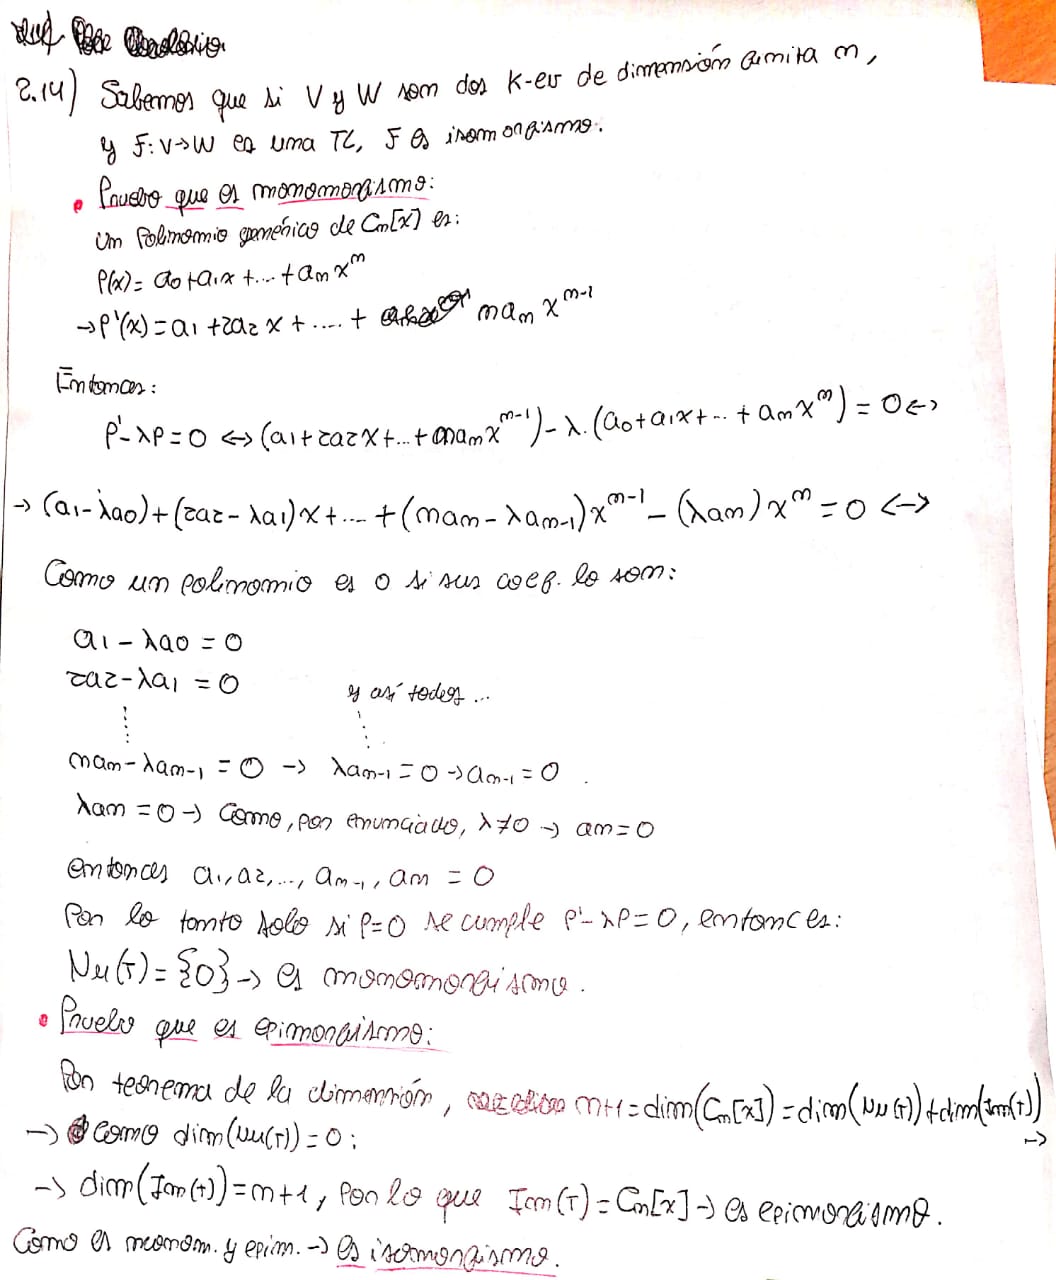 2.14) Sabemos que si V y W son dos K-ev de dimensión finita n,
y F: V→W es una TL, F es isomorfismo.
• Pruebo que es monomorfismo:
Un Polinomio genérico de Cn[X] es:
P(x) = a0 + a1x + .... + an x^n
→ P'(x) = a1 + 2a2 x + ..... + nan x^n-1
Entonces:
P' - λP = 0 ↔ (a1 + 2a2x + ... + nan x^n-1) - λ.(a0 + a1x + ... + an x^n) = 0 ↔
→ (a1 - λa0) + (2a2 - λa1)x + .... + (nan - λan-1)x^n-1 - (λan) x^n = 0 ↔
Como un polinomio es 0 si sus coef. lo son:
a1 - λa0 = 0
2a2 - λa1 = 0
y así todos ...
nan - λan-1 = 0 → λan-1 = 0 → an-1 = 0
λan = 0 → Como, por enunciado, λ≠0 → an = 0
entonces a1, a2, ..., an-1, an = 0
Por lo tanto solo si P=0 se cumple P'-λP=0, entonces:
Nu(T) = {0} → es monomorfismo.
• Pruebo que es epimorfismo:
Por teorema de la dimensión, n+1 = dim(Cn[x]) = dim(Nu(T)) + dim(Im(T))
→
→ Como dim(Nu(T)) = 0:
→ dim(Im(T)) = n+1, Por lo que Im(T) = Cn[x] → es epimorfismo.
Como es monom. y epim. → es isomorfismo.